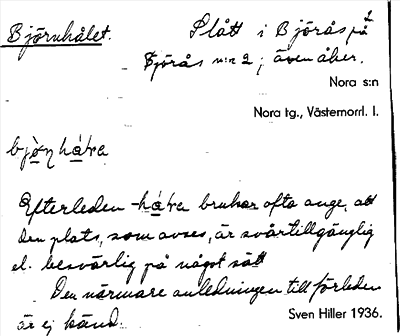 Björnhålet.
Slått i Björås på
Björås n:r 2; även åker.
Nora s:n
Nora tg., Västernorrl. l.
Efterleden -håɫa brukar ofta ange, att
den plats, som avses, är svårtillgänglig
el. besvärlig på något sätt
Den närmare anledningen till förleden
är ej känd.
Sven Hiller 1936.